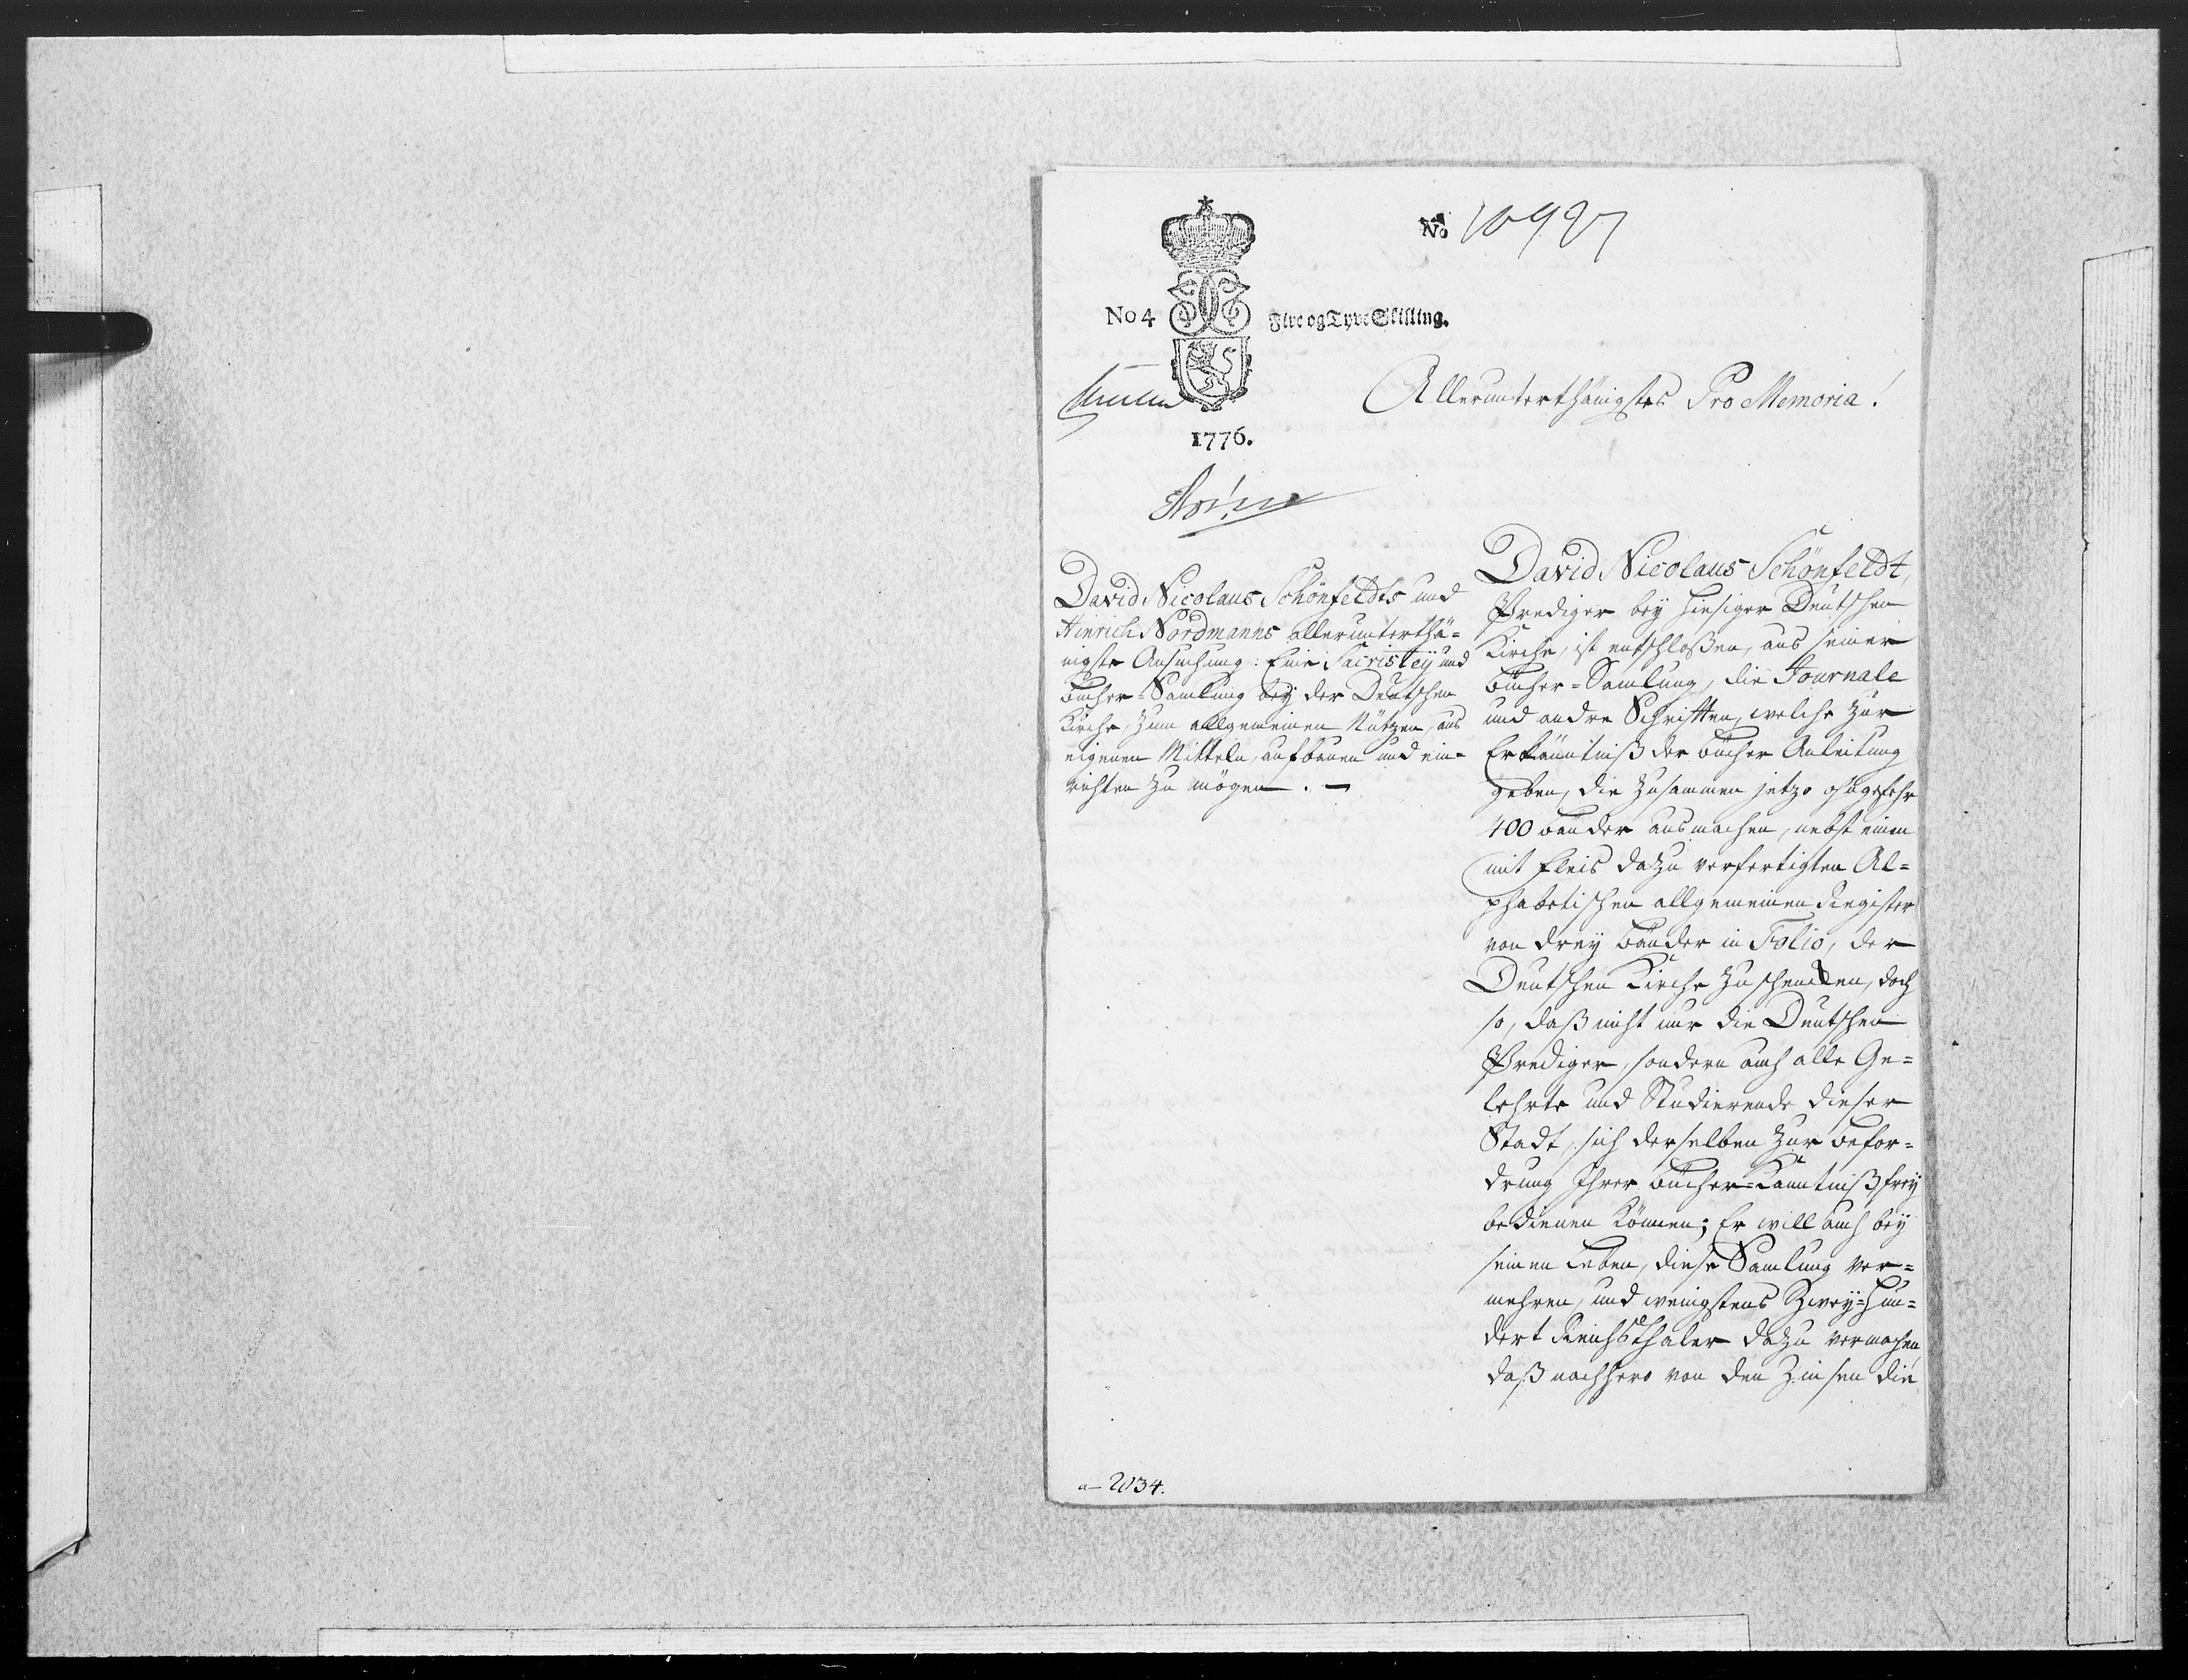 No 10927
No 4
Five og Tyve Skilling.
Allerunterthänigstes Pro Memoria!
1776.
David Nicolaus Schönfeldts und
Hinrich Nordmanns allerunterthä=
nigste Ansuchung: Eine Sacristey und
Bücher=Samlung bey der Deutschen
Kirche, zum allgemeinen Nutzen, aus
eigenen Mitteln, aufbauen und ein=
richten zu mögen. –
David Nicolaus Schönfeldt,
Prediger bey hiesiger Deutschen
Kirche, ist entschloßen, aus seiner
Bücher=Samlung, die Journale
und andre Schriften, welche zur
Erkänntniß der Bücher Anleitung
geben, die zusammen jetzo ohngefehr
400 Bänder ausmachen, nebst einen
mit Fleis dazu verfertigten Al=
phabetischen allgemeinen Register
von drey Bänder in Folio, der
Deutschen Kirche zu schencken, doch
so, daß nicht nur die Deutschen
Prediger, sondern auch alle Ge=
lehrte und Studierende dieser
Stadt, sich derselben zur Befor=
drung Ihrer Bücher=Känntniß, frey
bedienen können; Er will auch bey
seinen Leben, diese Samlung ver=
mehren, und wenigstens Zwey=Hun=
dert Reichsthaler dazu vermachen,
daß nachhero von den Zinsen die
a– 2034.